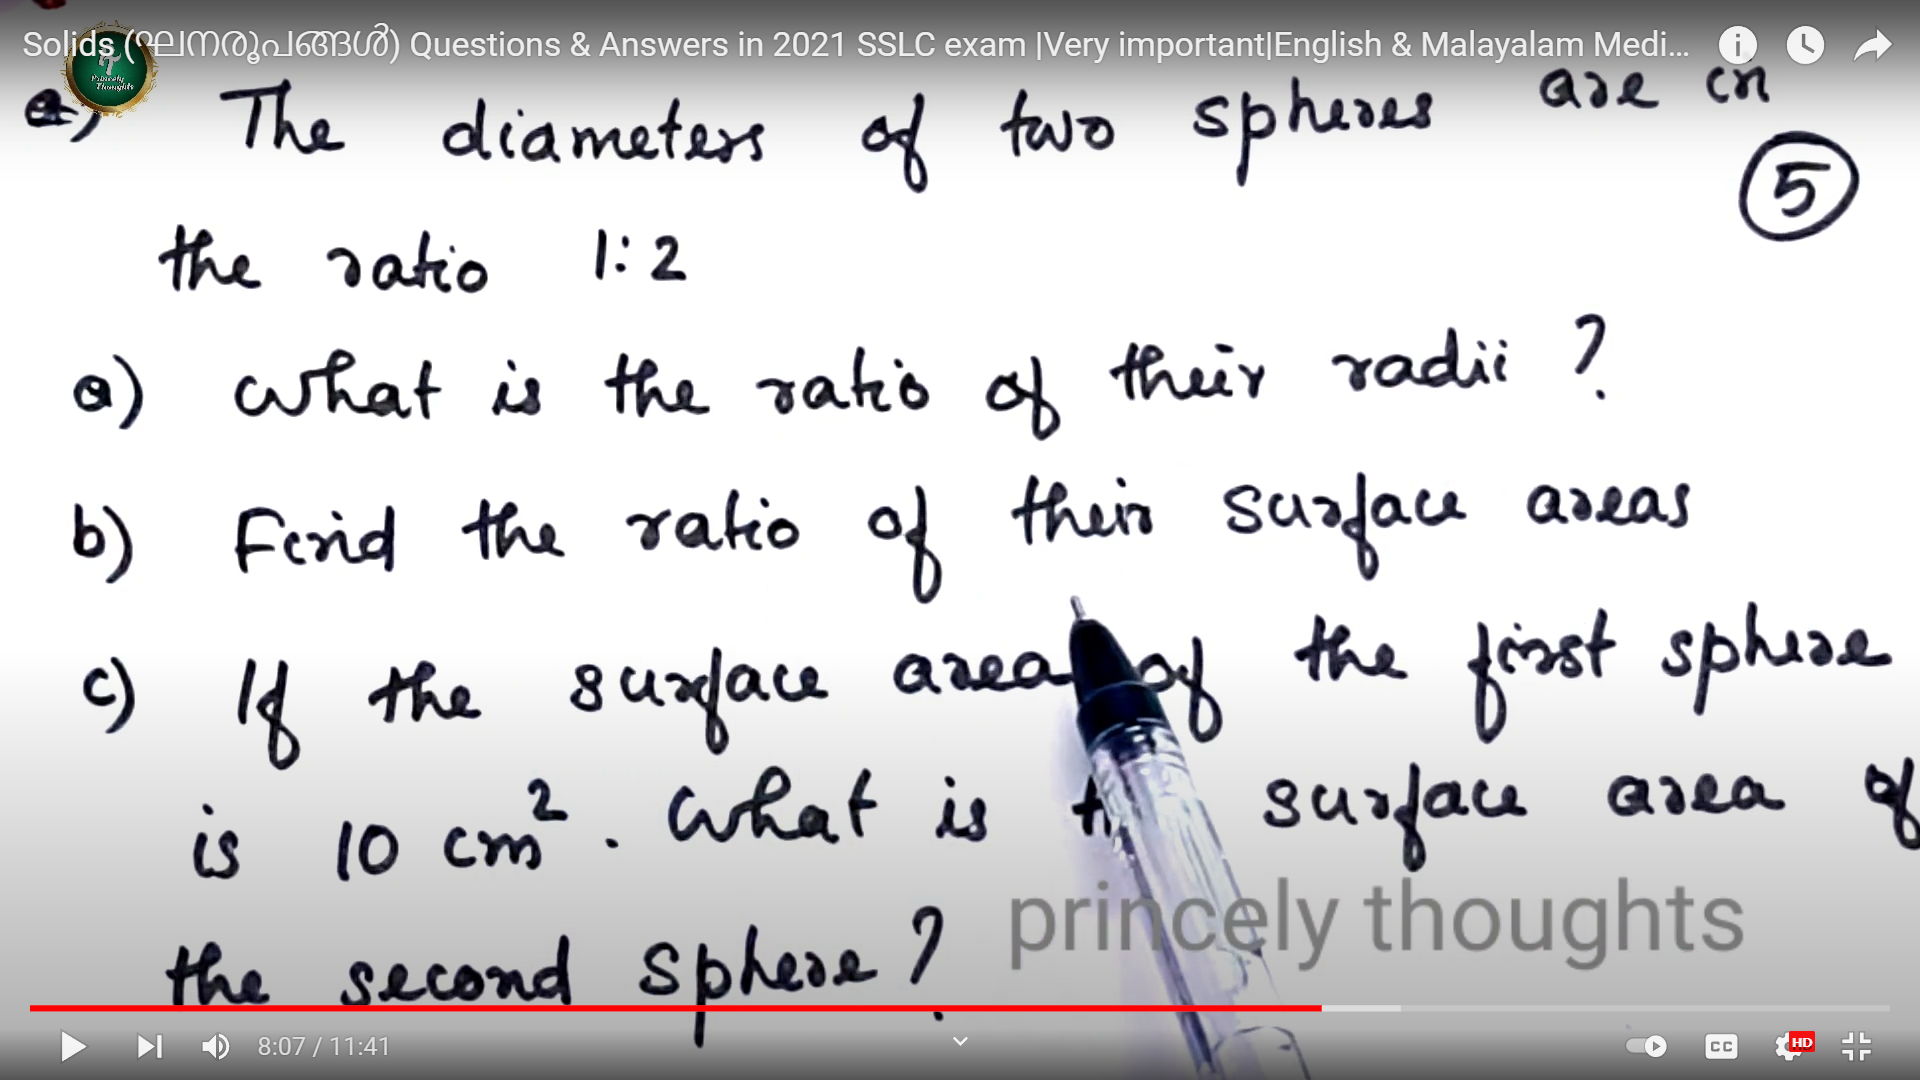 Solids (ഘനരൂപങ്ങൾ) Questions & Answers in 2021 SSLC exam |Very important|English & Malayalam Medi...
Princely Thoughts
Q) The diameters of two spheres are in
5
the ratio 1:2
a) What is the ratio of their radii ?
b) Find the ratio of their surface areas
c) If the surface area of the first sphere
is 10 cm². What is surface area of
princely thoughts
the second sphere ?
8:07 / 11:41
CC
HD